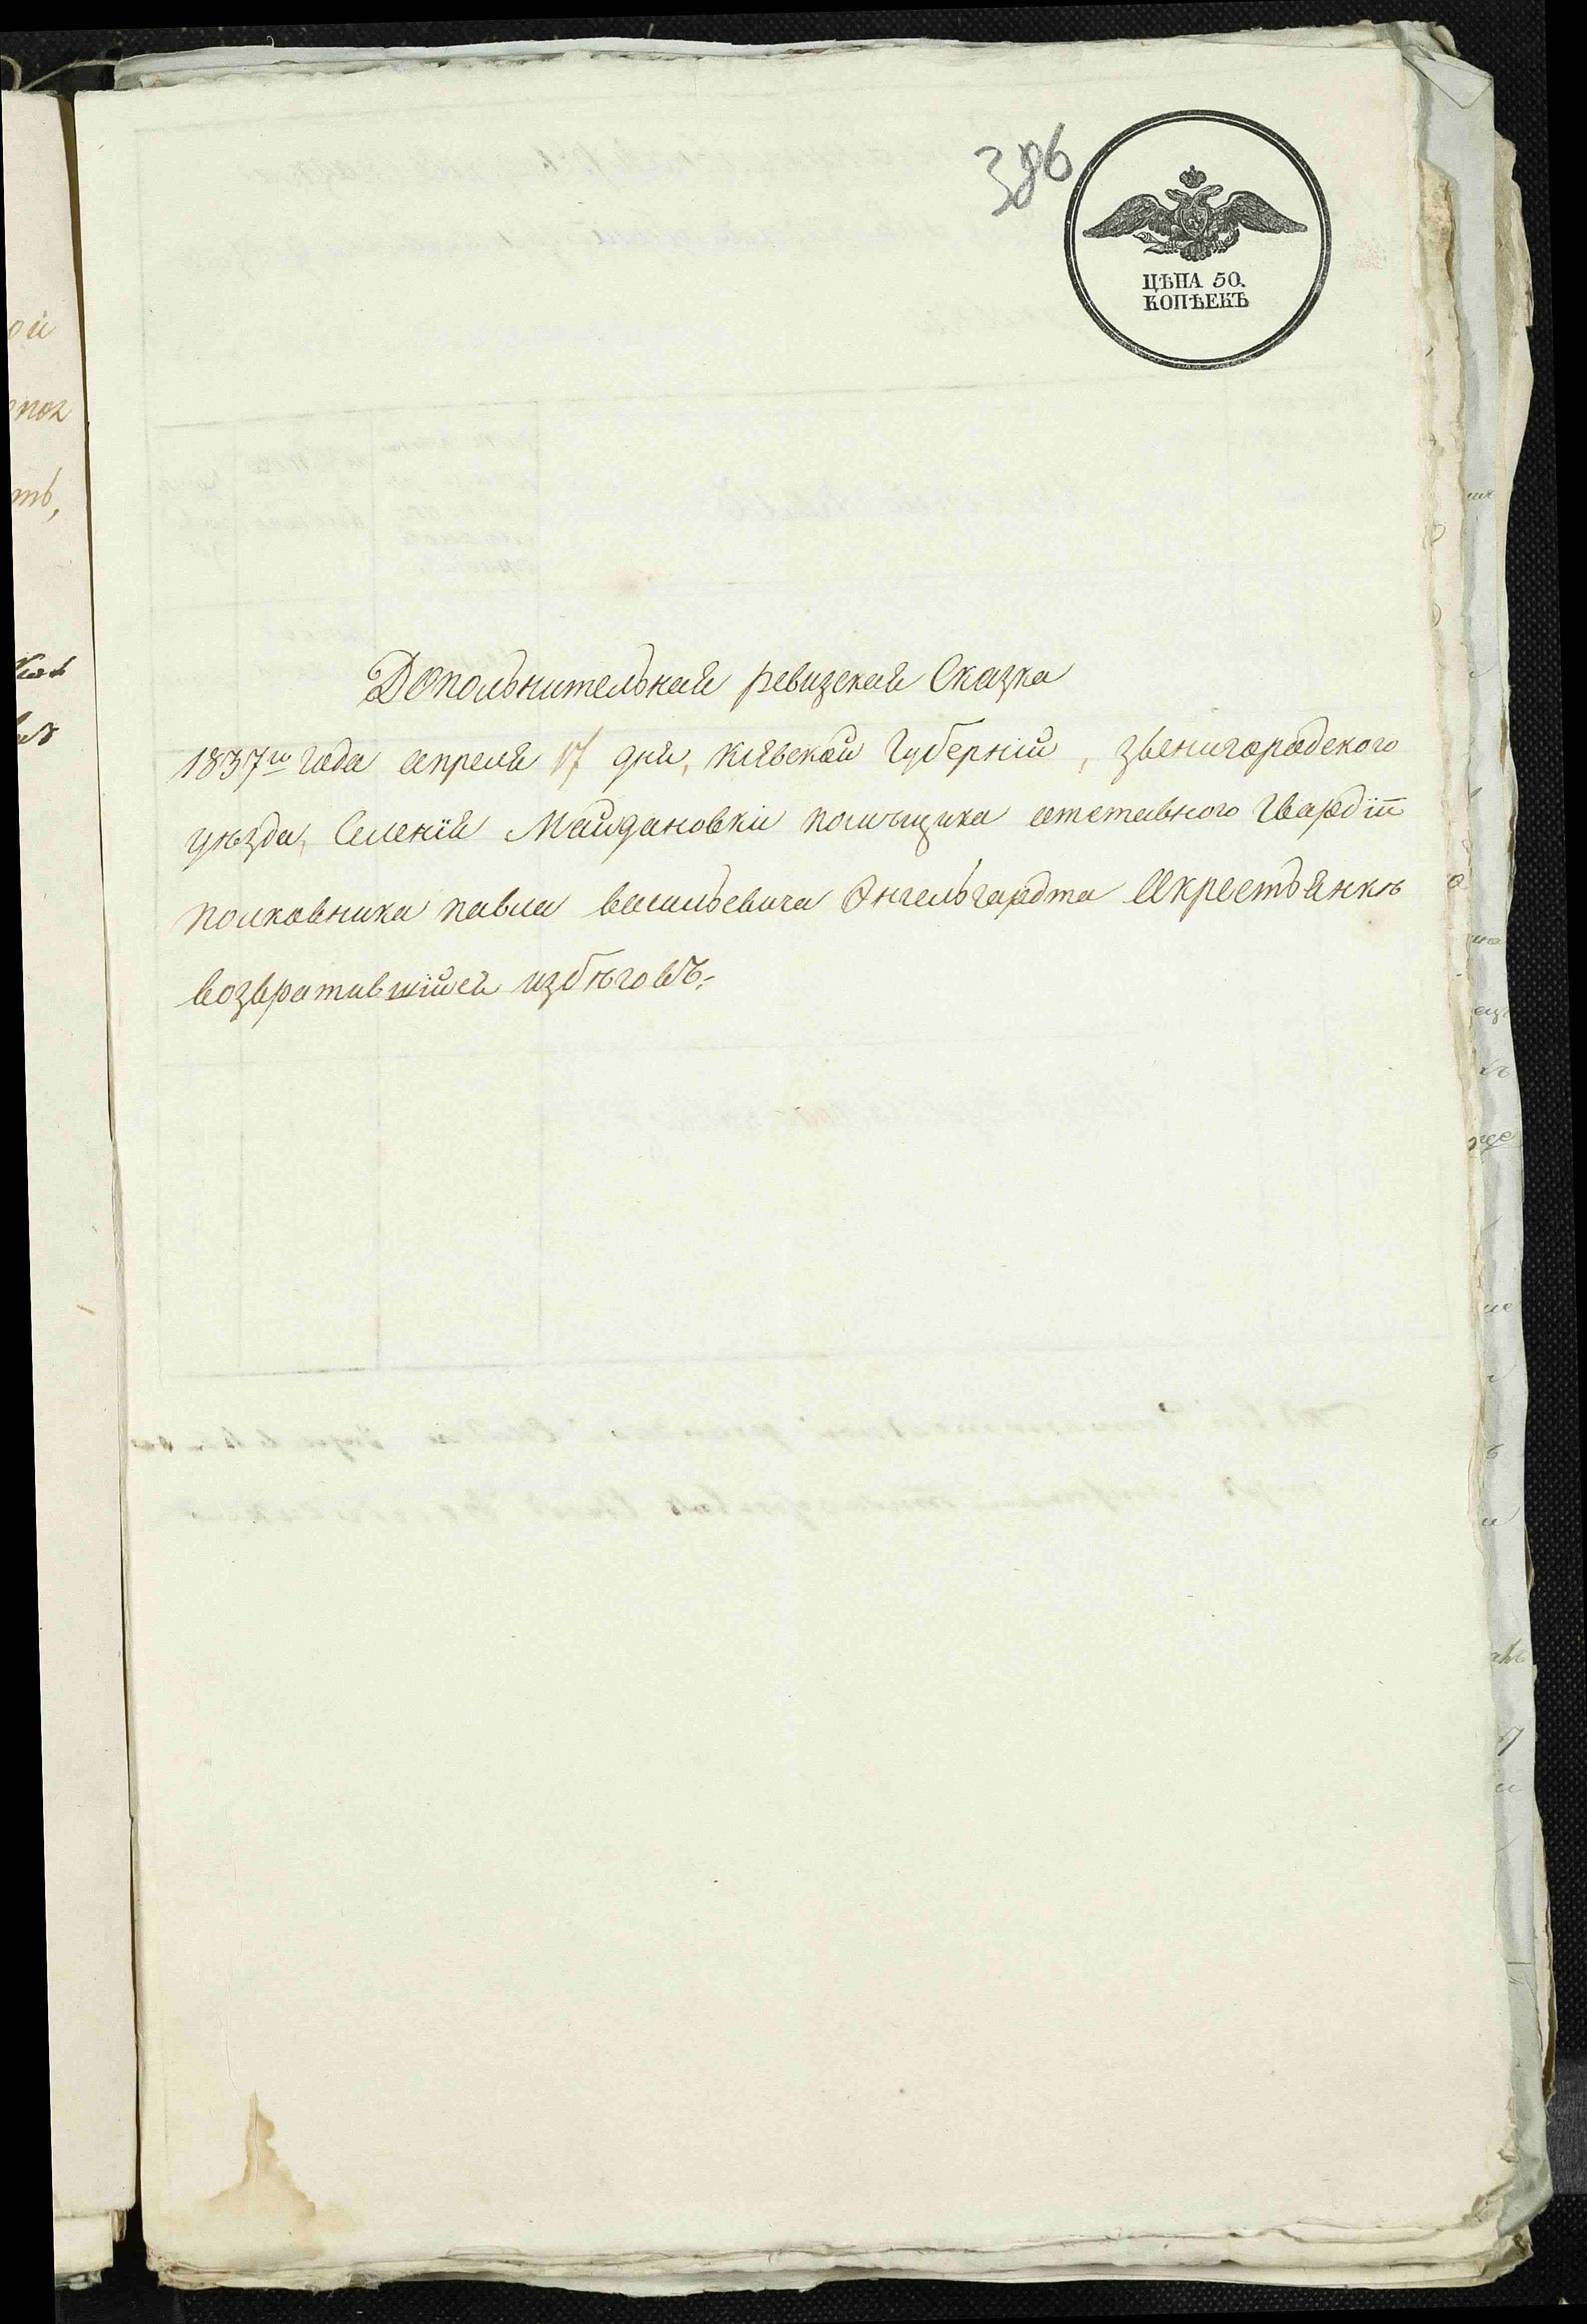 386
ЦѢНА 50.
КОПѢЕКЪ
Дополънителънай ревизскай Сказка
1837го года апрелй 17 днй, Кіевской Губерній, звенигородского
уѣзда, Селеній Майдановки помѣщика отставного Гвардій
полковника павла василъевича Энгелъгардта Окрестъянкѣ
возвратившійсй избѣговъ.